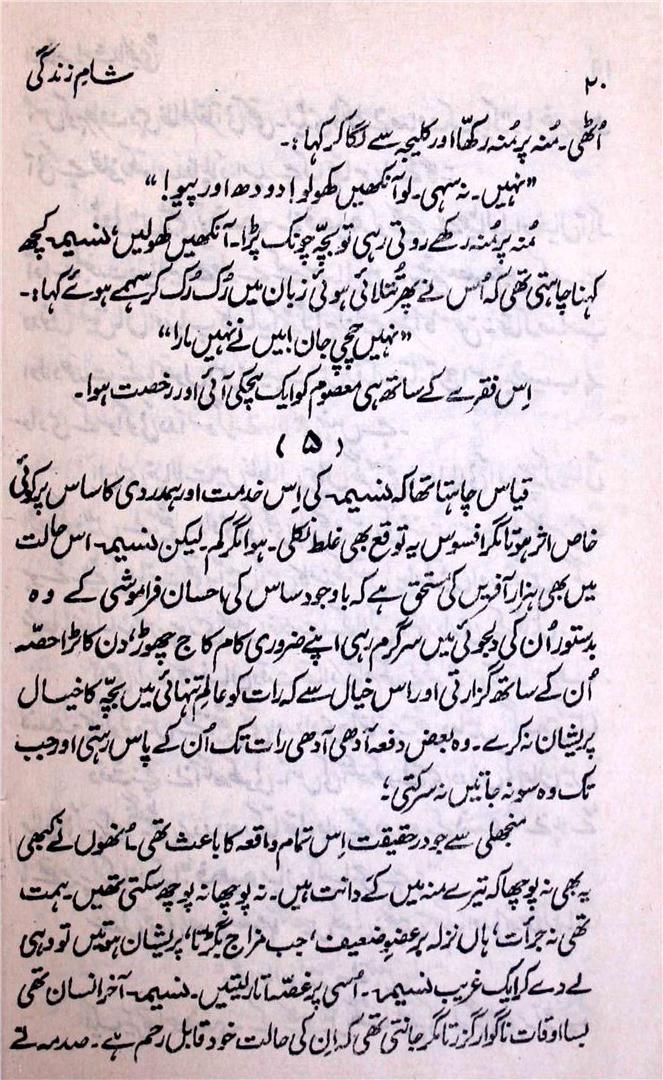 ۲۰
شامِ زندگی
اُٹھی۔ مُنہ پر مُنہ رکھّا اور کلیجہ سے لگا کر کہا :۔
”نہیں۔ نہ سہی۔ لو آنکھیں کھولو! دودھ اور پیو!“
مُنہ پر مُنہ رکھے روتی رہی تو بچّہ چونک پڑا۔ آنکھیں کھولیں، نسیمہ کچھ
کہنا چاہتی تھی کہ اُس نے پھر تُتلائی ہوئی زبان میں رُک رُک کر سہمے ہوئے کہا :۔
”نہیں چچی جان! میں نے نہیں مارا“
اِس فقرے کے ساتھ ہی معصوم کو ایک ہچکی آئی اور رخصت ہوا۔
(۵)
قیاس چاہتا تھا کہ نسیمہ کی اِس خدمت اور ہمدردی کا ساس پر کوئی
خاص اثر ہوتا مگر افسوس یہ توقع بھی غلط نکلی۔ ہوا مگر کم۔ لیکن نسیمہ اس حالت
میں بھی ہزار آفریں کی مستحق ہے کہ باوجود ساس کی احسان فراموشی کے وہ
بدستور اُن کی دلجوئی میں سرگرم رہی اپنے ضروری کام کاج چھوڑ، دن کا بڑا حصّہ
اُن کے ساتھ گزارتی اور اس خیال سے کہ رات کو عالمِ تنہائی میں بچّہ کا خیال
پریشان نہ کرے۔ وہ بعض دفعہ آدھی آدھی رات تک اُن کے پاس رہتی اور جب
تک وہ سو نہ جاتیں نہ سرکتی؛
منجھلی سے جو درحقیقت اِس تمام واقعہ کا باعث تھی۔ اُنھوں نے کبھی
یہ بھی نہ پوچھا کہ تیرے منہ میں کے دانت ہیں۔ نہ پوچھا نہ پوچھ سکتی تھیں۔ ہمت
تھی نہ جرأت، ہاں نزلہ بر عضوِ ضعیف، جب مزاج بگڑتا، پریشان ہوتیں تو وہی
لے دے کر ایک غریب نسیمہ۔ اُسی پر غصّہ اتار لیتیں۔ نسیمہ۔ آخر انسان تھی
بسا اوقات ناگوار گزرتا مگر جانتی تھی کہ اِن کی حالت خود قابل رحم ہے۔ صدمہ نے